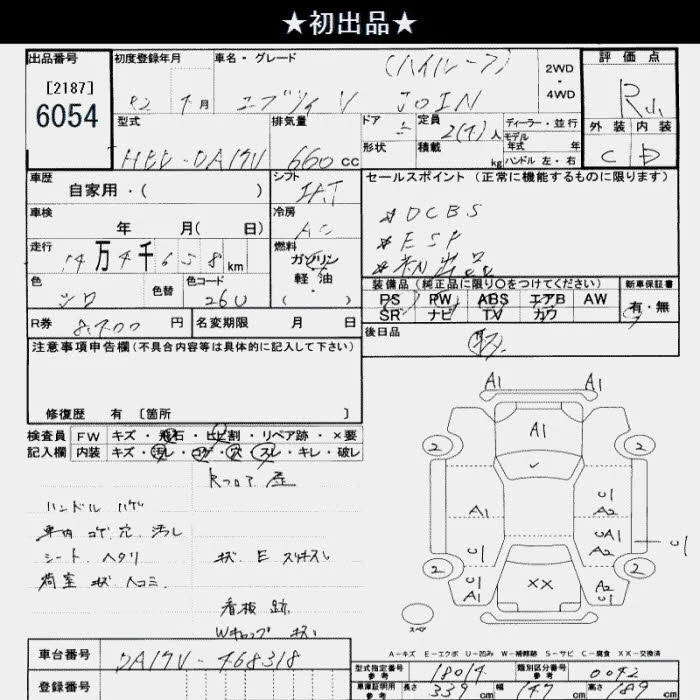 ★初出品★
出品番号
[2187]
6054
初度登録年月
R2 年 月
車名・グレード
(ハイルーフ)
エブリィ V JOIN
2WD
・
4WD
評価点
R
外装 内装
C D
型式
HBD-DA17V
排気量
660 cc
ドア
形状
定員
2(4) 人
積載
kg
ディーラー・並行
モデル
年式 年
ハンドル 左・右
車歴
自家用・( )
シフト
IAT
車検
年 月( 日)
冷房
AC
走行
14万4千658 km
燃料
ガソリン
軽油
・( )
色
シロ
色替
色コード
26U
R券
8,700 円
名変期限 月 日
セールスポイント (正常に機能するものに限ります)
* DCBS
* ESP
* 初出品
装備品 (純正品に限り○をつけてください)
PS PW ABS エアB AW
SR ナビ TV カワ
新車保証書
有・無
後日品
取
注意事項申告欄 (不具合内容等は具体的に記入して下さい)
修復歴 有 〔箇所 〕
検査員
記入欄
FW キズ・飛石・ヒビ割・リペア跡・×要
内装 キズ・汚レ・コゲ・穴・スレ・キレ・破レ
Rフロア 歪
ハンドル ハゲ
車内 コゲ穴 汚レ
シート ヘタリ
荷室 状 ヘコミ
状 E スリキズレ
看板 跡
Wキャップ
A1 A1
A1
2 2
U1
A1 A2
UA1
U1 A2 U1
2 2
U1 A2
A1 ×× U1
スペア
A-キズ E-エクボ U-凹み W-補修跡 S-サビ C-腐食 XX-交換済
車台番号
DA17V-468318
登録番号
型式指定番号
参考
18014
類別区分番号
参考
0042
車庫証明用
参考
長さ 339 cm
幅 147 cm
高さ 189 cm